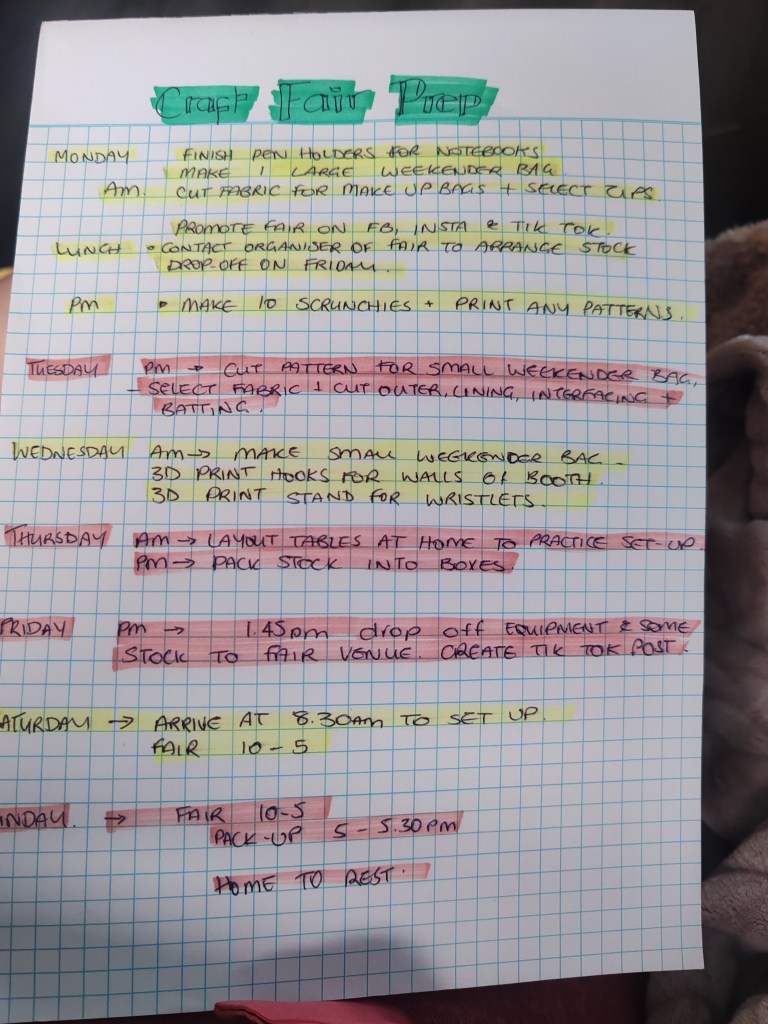 Craft Fair Prep
MONDAY FINISH PEN HOLDERS FOR NOTEBOOKS
MAKE 1 LARGE WEEKENDER BAG
Am. CUT FABRIC FOR MAKE UP BAGS + SELECT ZIPS.
PROMOTE FAIR ON FB, INSTA & TIK TOK.
LUNCH • CONTACT ORGANISER OF FAIR TO ARRANGE STOCK
DROP-OFF ON FRIDAY.
Pm • MAKE 10 SCRUNCHIES + PRINT ANY PATTERNS.
TUESDAY Pm → CUT PATTERN FOR SMALL WEEKENDER BAG,
- SELECT FABRIC + CUT OUTER, LINING, INTERFACING +
BATTING.
WEDNESDAY Am → MAKE SMALL WEEKENDER BAG.
3D PRINT HOOKS FOR WALLS OF BOOTH.
3D PRINT STAND FOR WRISTLETS.
THURSDAY Am → LAYOUT TABLES AT HOME TO PRACTICE SET-UP.
Pm → PACK STOCK INTO BOXES
FRIDAY Pm → 1.45pm drop off EQUIPMENT & SOME
STOCK TO FAIR VENUE. CREATE TIK TOK POST.
ATURDAY → ARRIVE AT 8.30am TO SET UP.
FAIR 10-5
UNDAY. → FAIR 10-5
PACK-UP 5-5.30pm
HOME TO REST.